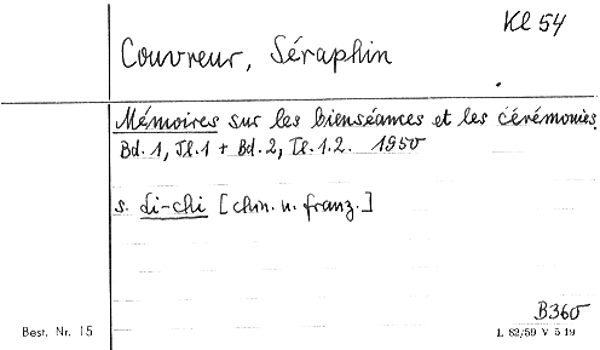 Kl 54
Couvreur, Séraphin
Mémoires sur les bienséances et les cérémonies.
Bd. 1, Tl. 1 + Bd. 2, Tl. 1.2. 1950
s. Li-chi [chin. u. franz.]
B360
Best. Nr. 15
L 82/59 V 5 19